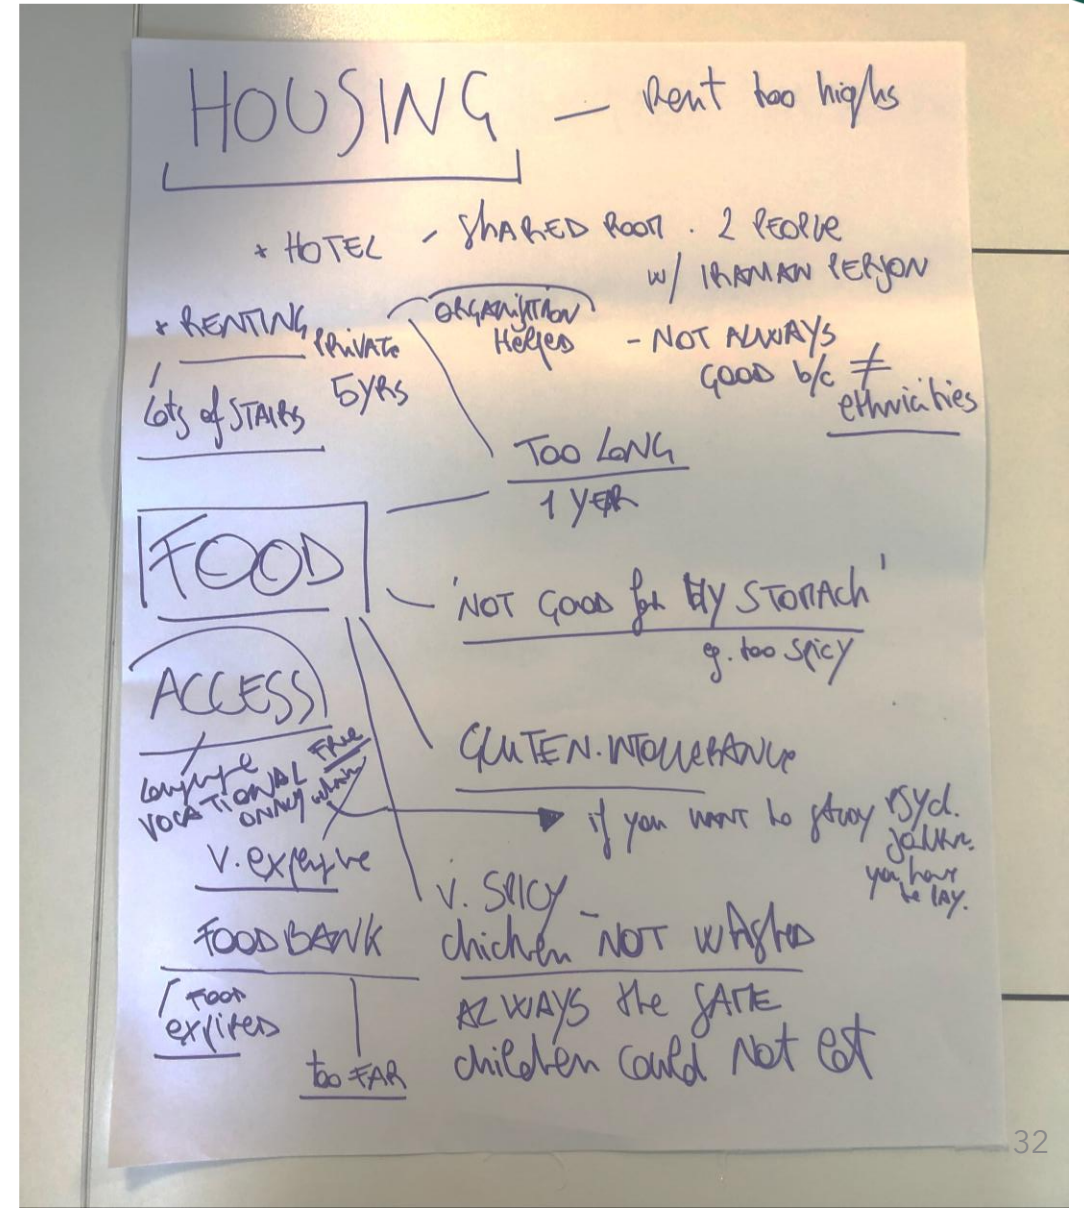 HOUSING — Rent too highs
* HOTEL - ShARED ROOM . 2 PEOPLE
w/ IRANIAN PERSON
* RENTING PRIVATE 5YRS
Lots of STAIRS
ORGANISTION
Helped
- NOT ALWAYS
GOOD b/c ≠
ethnicities
TOO LONG
1 YEAR
FOOD
'NOT GOOD for MY STOMACh'
eg. too SPICY
ACCESS
language
VOCATIONAL FREE
ONLY
V. expensive
GLUTEN.INTOLLERANCE
if you WANT to study PSYCh.
you have
to PAY.
V. SPICY -
chicken NOT WAShED
ALWAYS the SAME
children could Not eat
FOOD BANK
FOOD
expired
too FAR
32